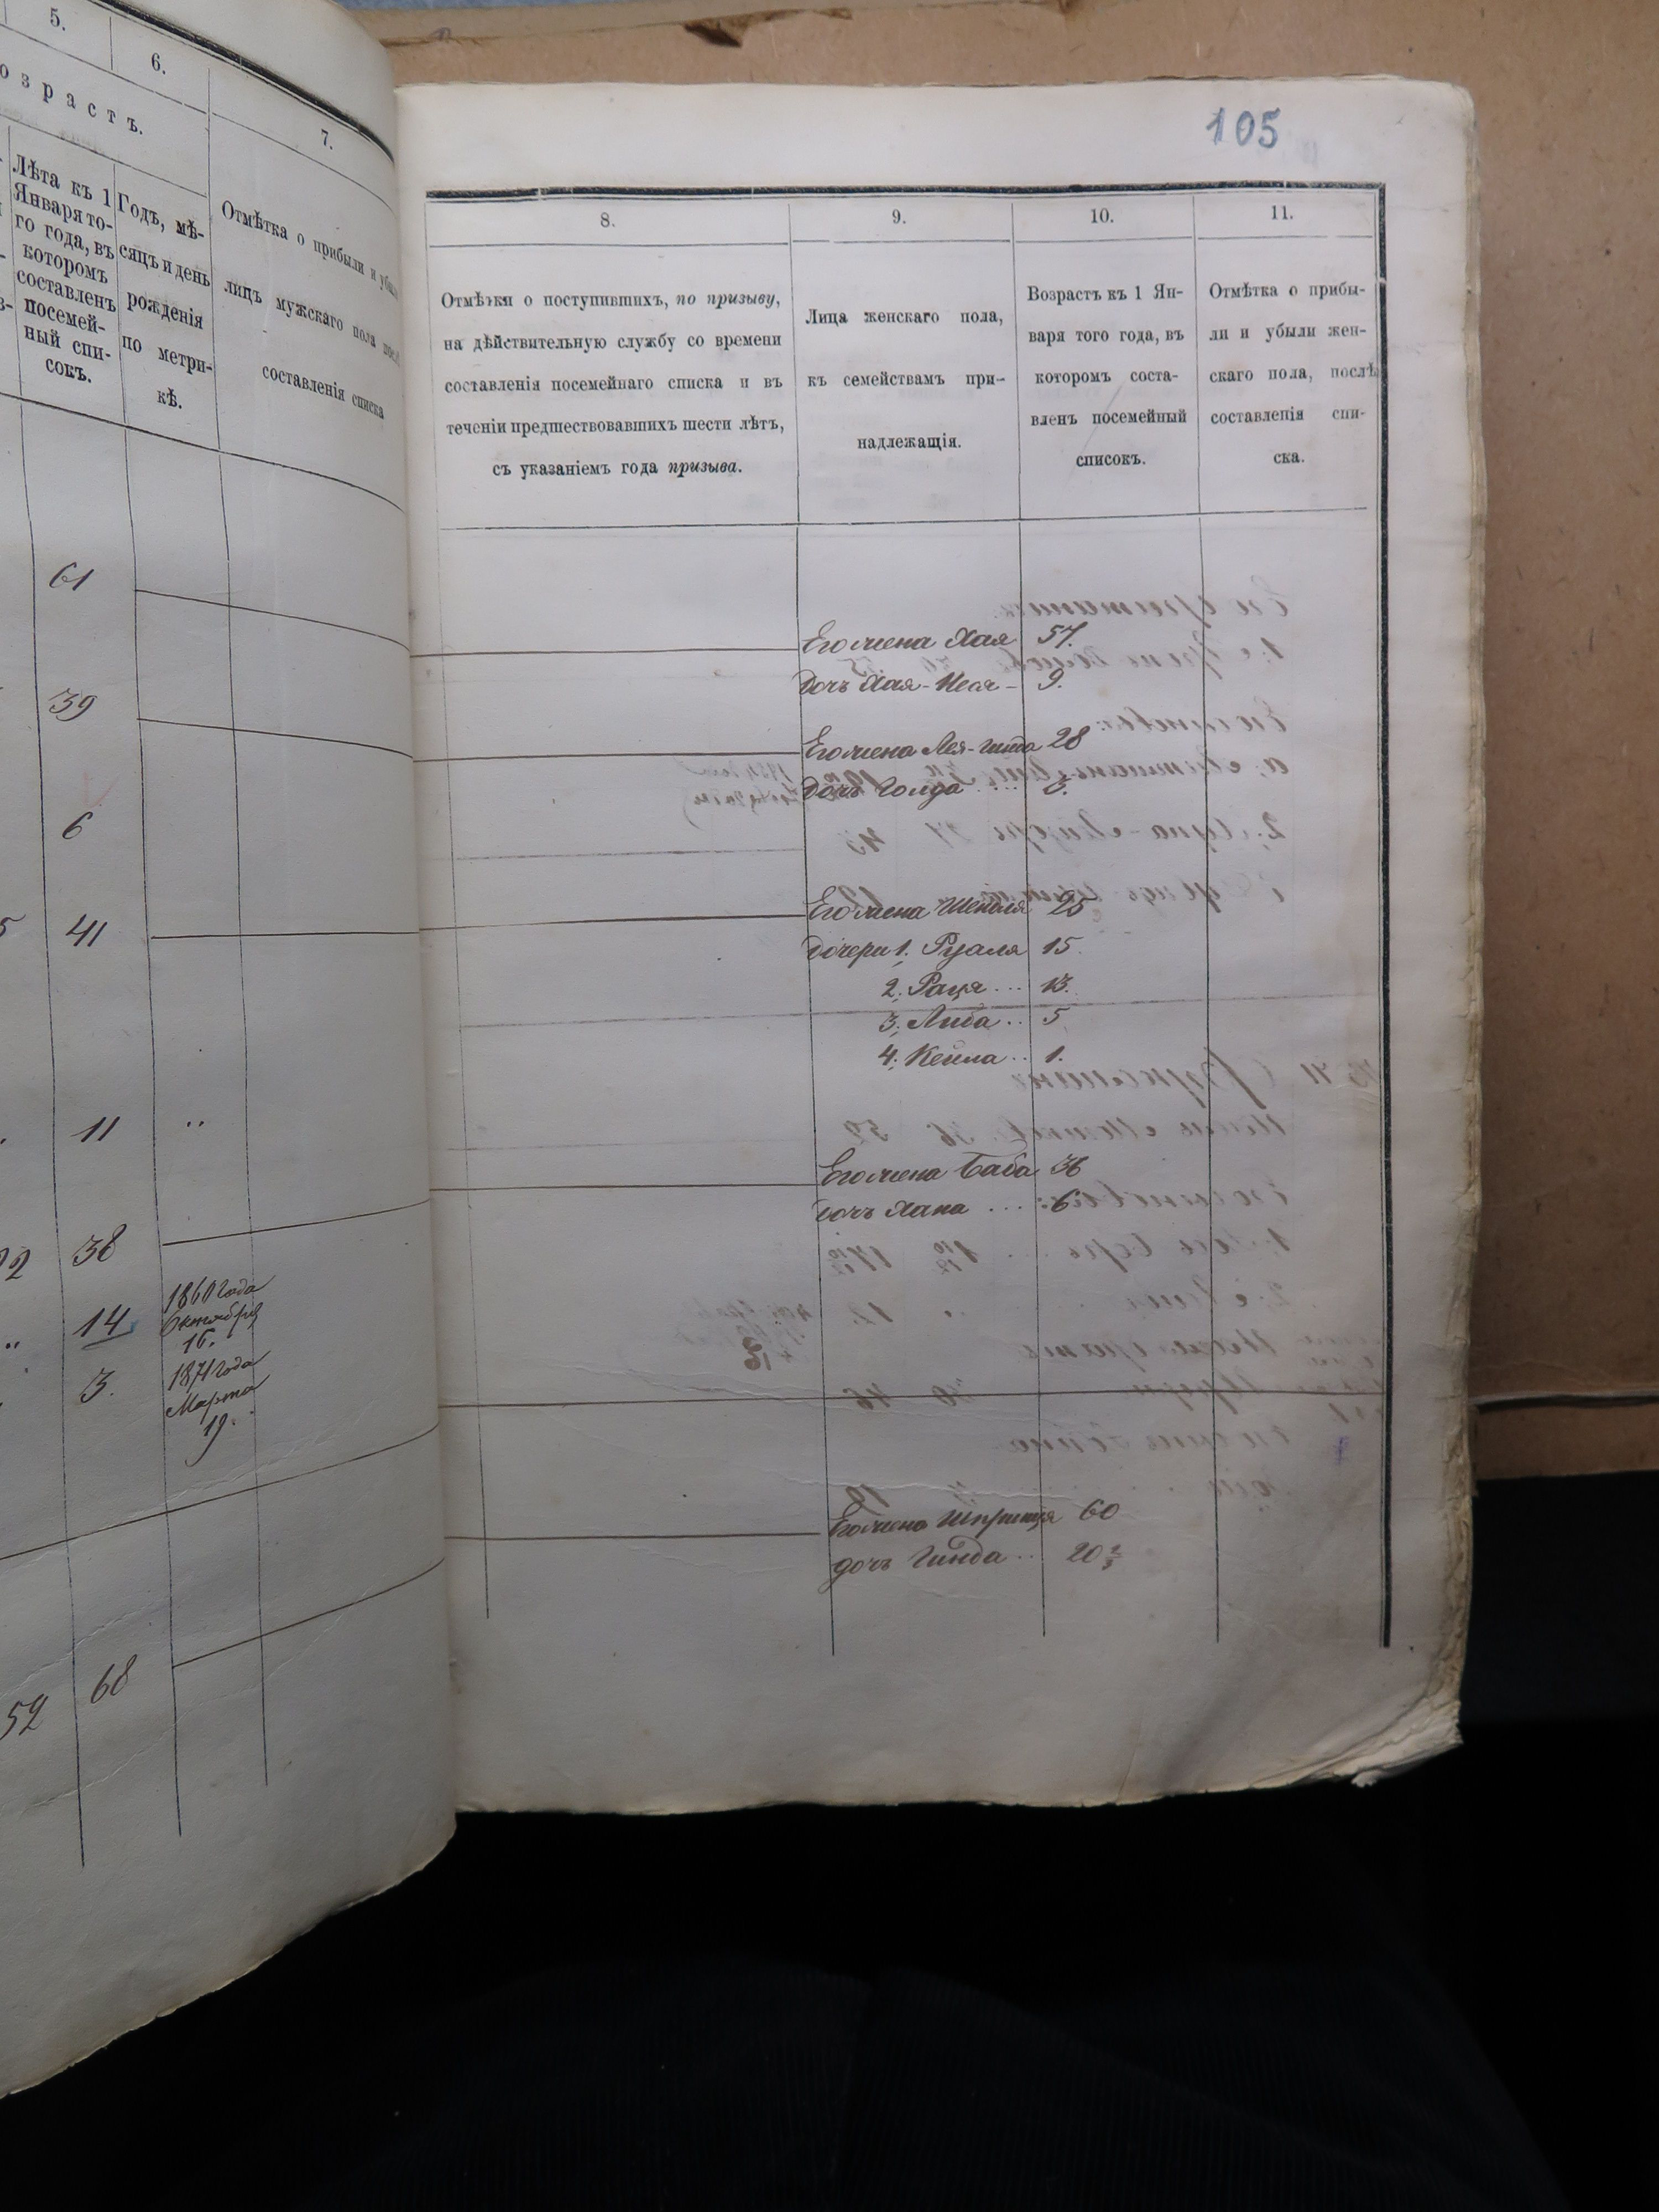 5.
6.
озрастъ.
7.
Лѣта къ 1
Января то-
го года, въ
которомъ
составленъ
посемей-
ный спи-
сокъ.
Годъ, мѣ-
сяцъ и день
рожденія
по метри-
кѣ.
Отмѣтка о прибыли и
лицъ мужскаго пола
составленія списка
61
39
6
41
11
38
14
1860 года
Октября
16.
3.
1871 года
Марта
19.
59 68
105
8.
9.
10.
11.
Отмѣтки о поступившихъ, по призыву,
на дѣйствительную службу со времени
составленія посемейнаго списка и въ
теченіи предшествовавшихъ шести лѣтъ,
съ указаніемъ года призыва.
Лица женскаго пола,
къ семействамъ при-
надлежащія.
Возрастъ къ 1 Ян-
варя того года, въ
которомъ соста-
вленъ посемейный
списокъ.
Отмѣтка о прибы-
ли и убыли жен-
скаго пола, послѣ
составленія спи-
ска.
Его жена Хая 57.
Дочь Хая- 9.
Его жена Лея-Гитда 28
Дочь Голда 3.
Его жена 25
Дочери 1. Рузаля 15
2. Раця... 13.
3. Либа.. 5
4. Кейла.. 1.
Его жена Баба 36
Дочь Хана ... 6
Его жена Шпринця 60
дочь Гинда.. 20